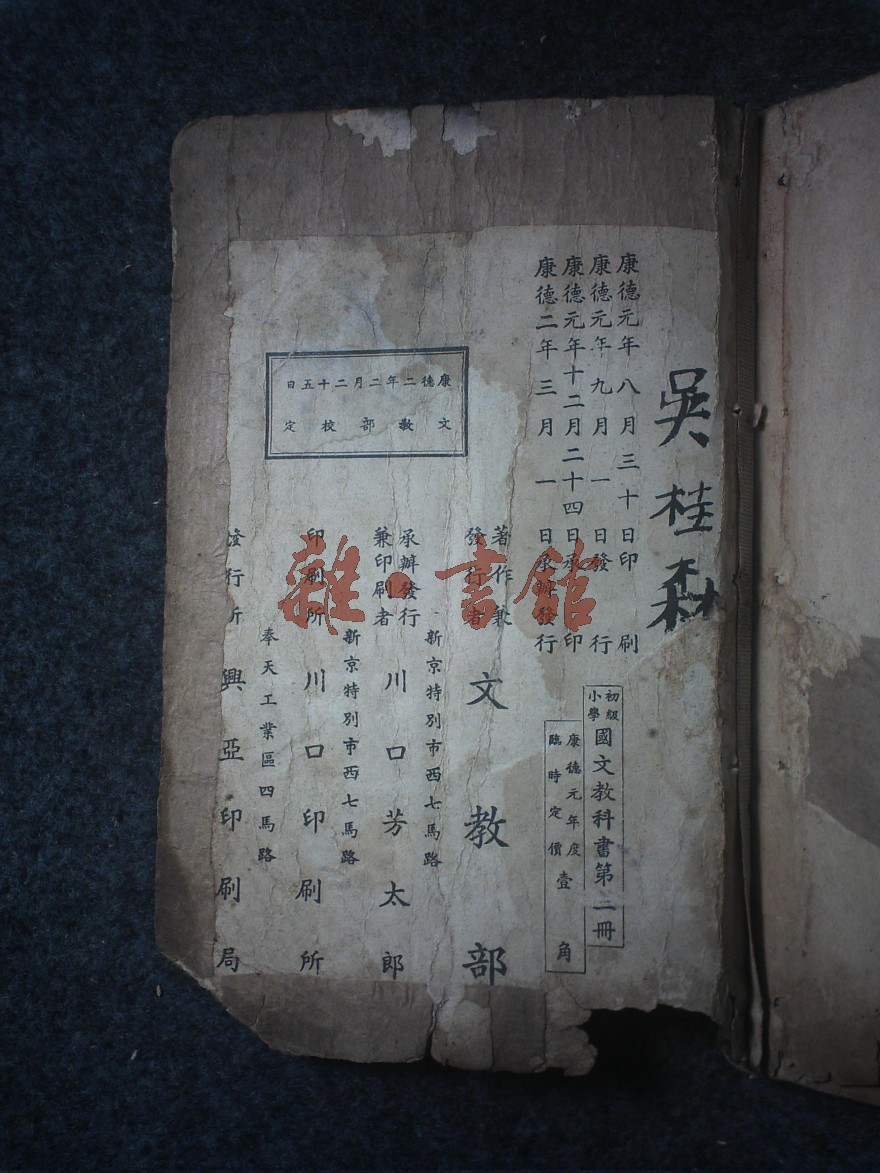 吳桂森
康德元年八月三十日印刷
康德元年九月一日發行
康德元年十二月二十四日承印
康德二年三月一日承辦發行
初級
小學
國文教科書第二冊
康德元年度
臨時定價壹角
著作兼
發行者
文教部
新京特別市西七馬路
承辦發行
兼印刷者
川口芳太郎
新京特別市西七馬路
印刷所
川口印刷所
奉天工業區四馬路
發行所
興亞印刷局
康德二年二月二十五日
文教部校定
雜·書館